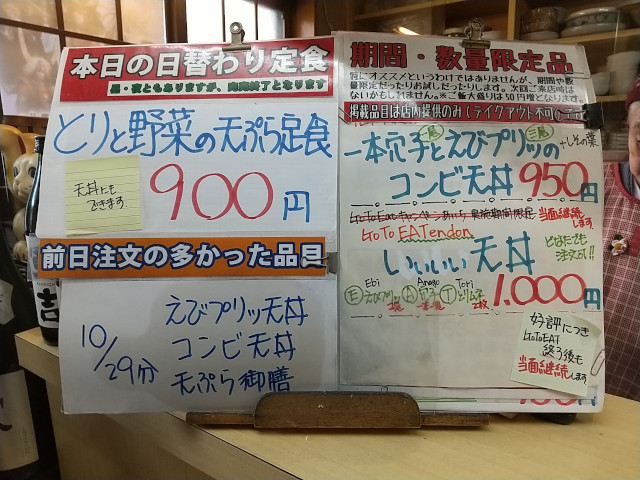 本日の日替わり定食
昼・夜ともありますが、売切終了となります
とりと野菜の天ぷら定食
天丼にも
できます
900円
前日注文の多かった品目
10/29分
えびプリッ天丼
コンビ天丼
天ぷら御膳
期間・数量限定品
特にオススメというわけではありませんが、期間や数
量限定だったりお試しだったりします。次回ご来店時は
ないかもしれません。※ご飯大盛りは50円増となります。
掲載品目は店内提供のみ(テイクアウト不可)
一本穴子とえびプリッの
+しその葉
コンビ天丼 950円
当面継続
します
GoTo EATendon
いいいい天丼
どなたでも
注文可!!
Ebi Anago Tori
E えびプリッ A アナゴ T とりムネ
2枚
1.000円
好評につき
GoToEAT
終う後も
当面継続します